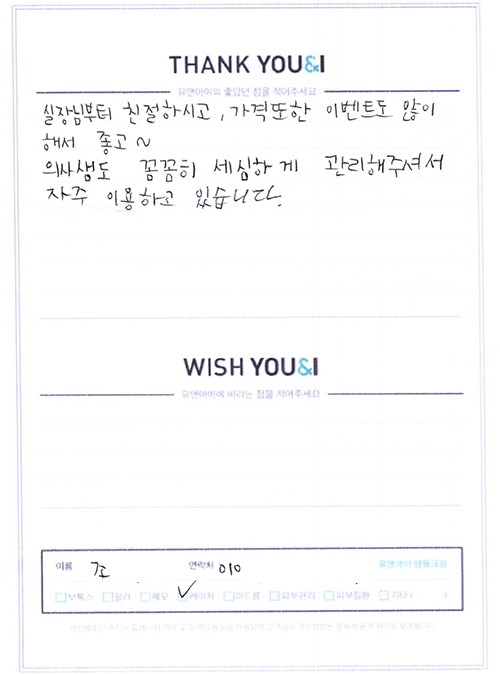 THANK YOU&I
유앤아이의 좋았던 점을 적어주세요
실장님부터 친절하시고, 가격또한 이벤트도 많이
해서 좋고~
의사쌤도 꼼꼼히 세심하게 관리해주셔서
자주 이용하고 있습니다.
WISH YOU&I
유앤아이에 바라는 점을 적어주세요
이름 연락처 010 유앤아이
보톡스 필러 제모 레이저 여드름 피부관리 피부질환 기타 ( )